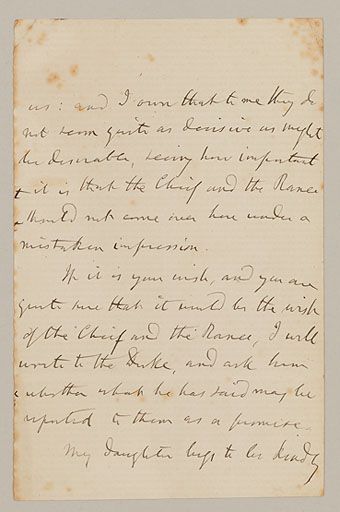 us: and I own that to me they do
not seem quite as decisive as might
be desirable, seeing how important
it is that the Chief and the Ranee
should not come over here under a
mistaken impression.
If it is your wish, and you are
quite sure that it would be the wish
of the Chief and the Ranee, I will
write to the Duke, and ask him
whether what he has said may be
reported to them as a promise.
My daughter begs to be kindly